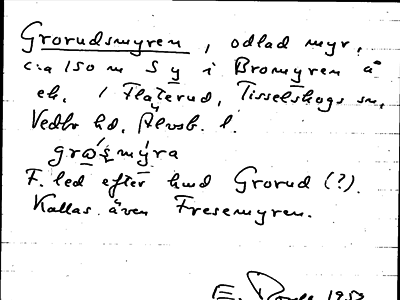 Grorudsmyren, odlad myr,
c:a 150 m S y i Bromyren å
eh. 1 Flaterud, Tisselskogs sn,
Vedbo hd, Älvsb. l.
grὼʂmy̗ra
F. led efter hmd Grorud (?).
Kallas även Fresemyren.
E. 1952